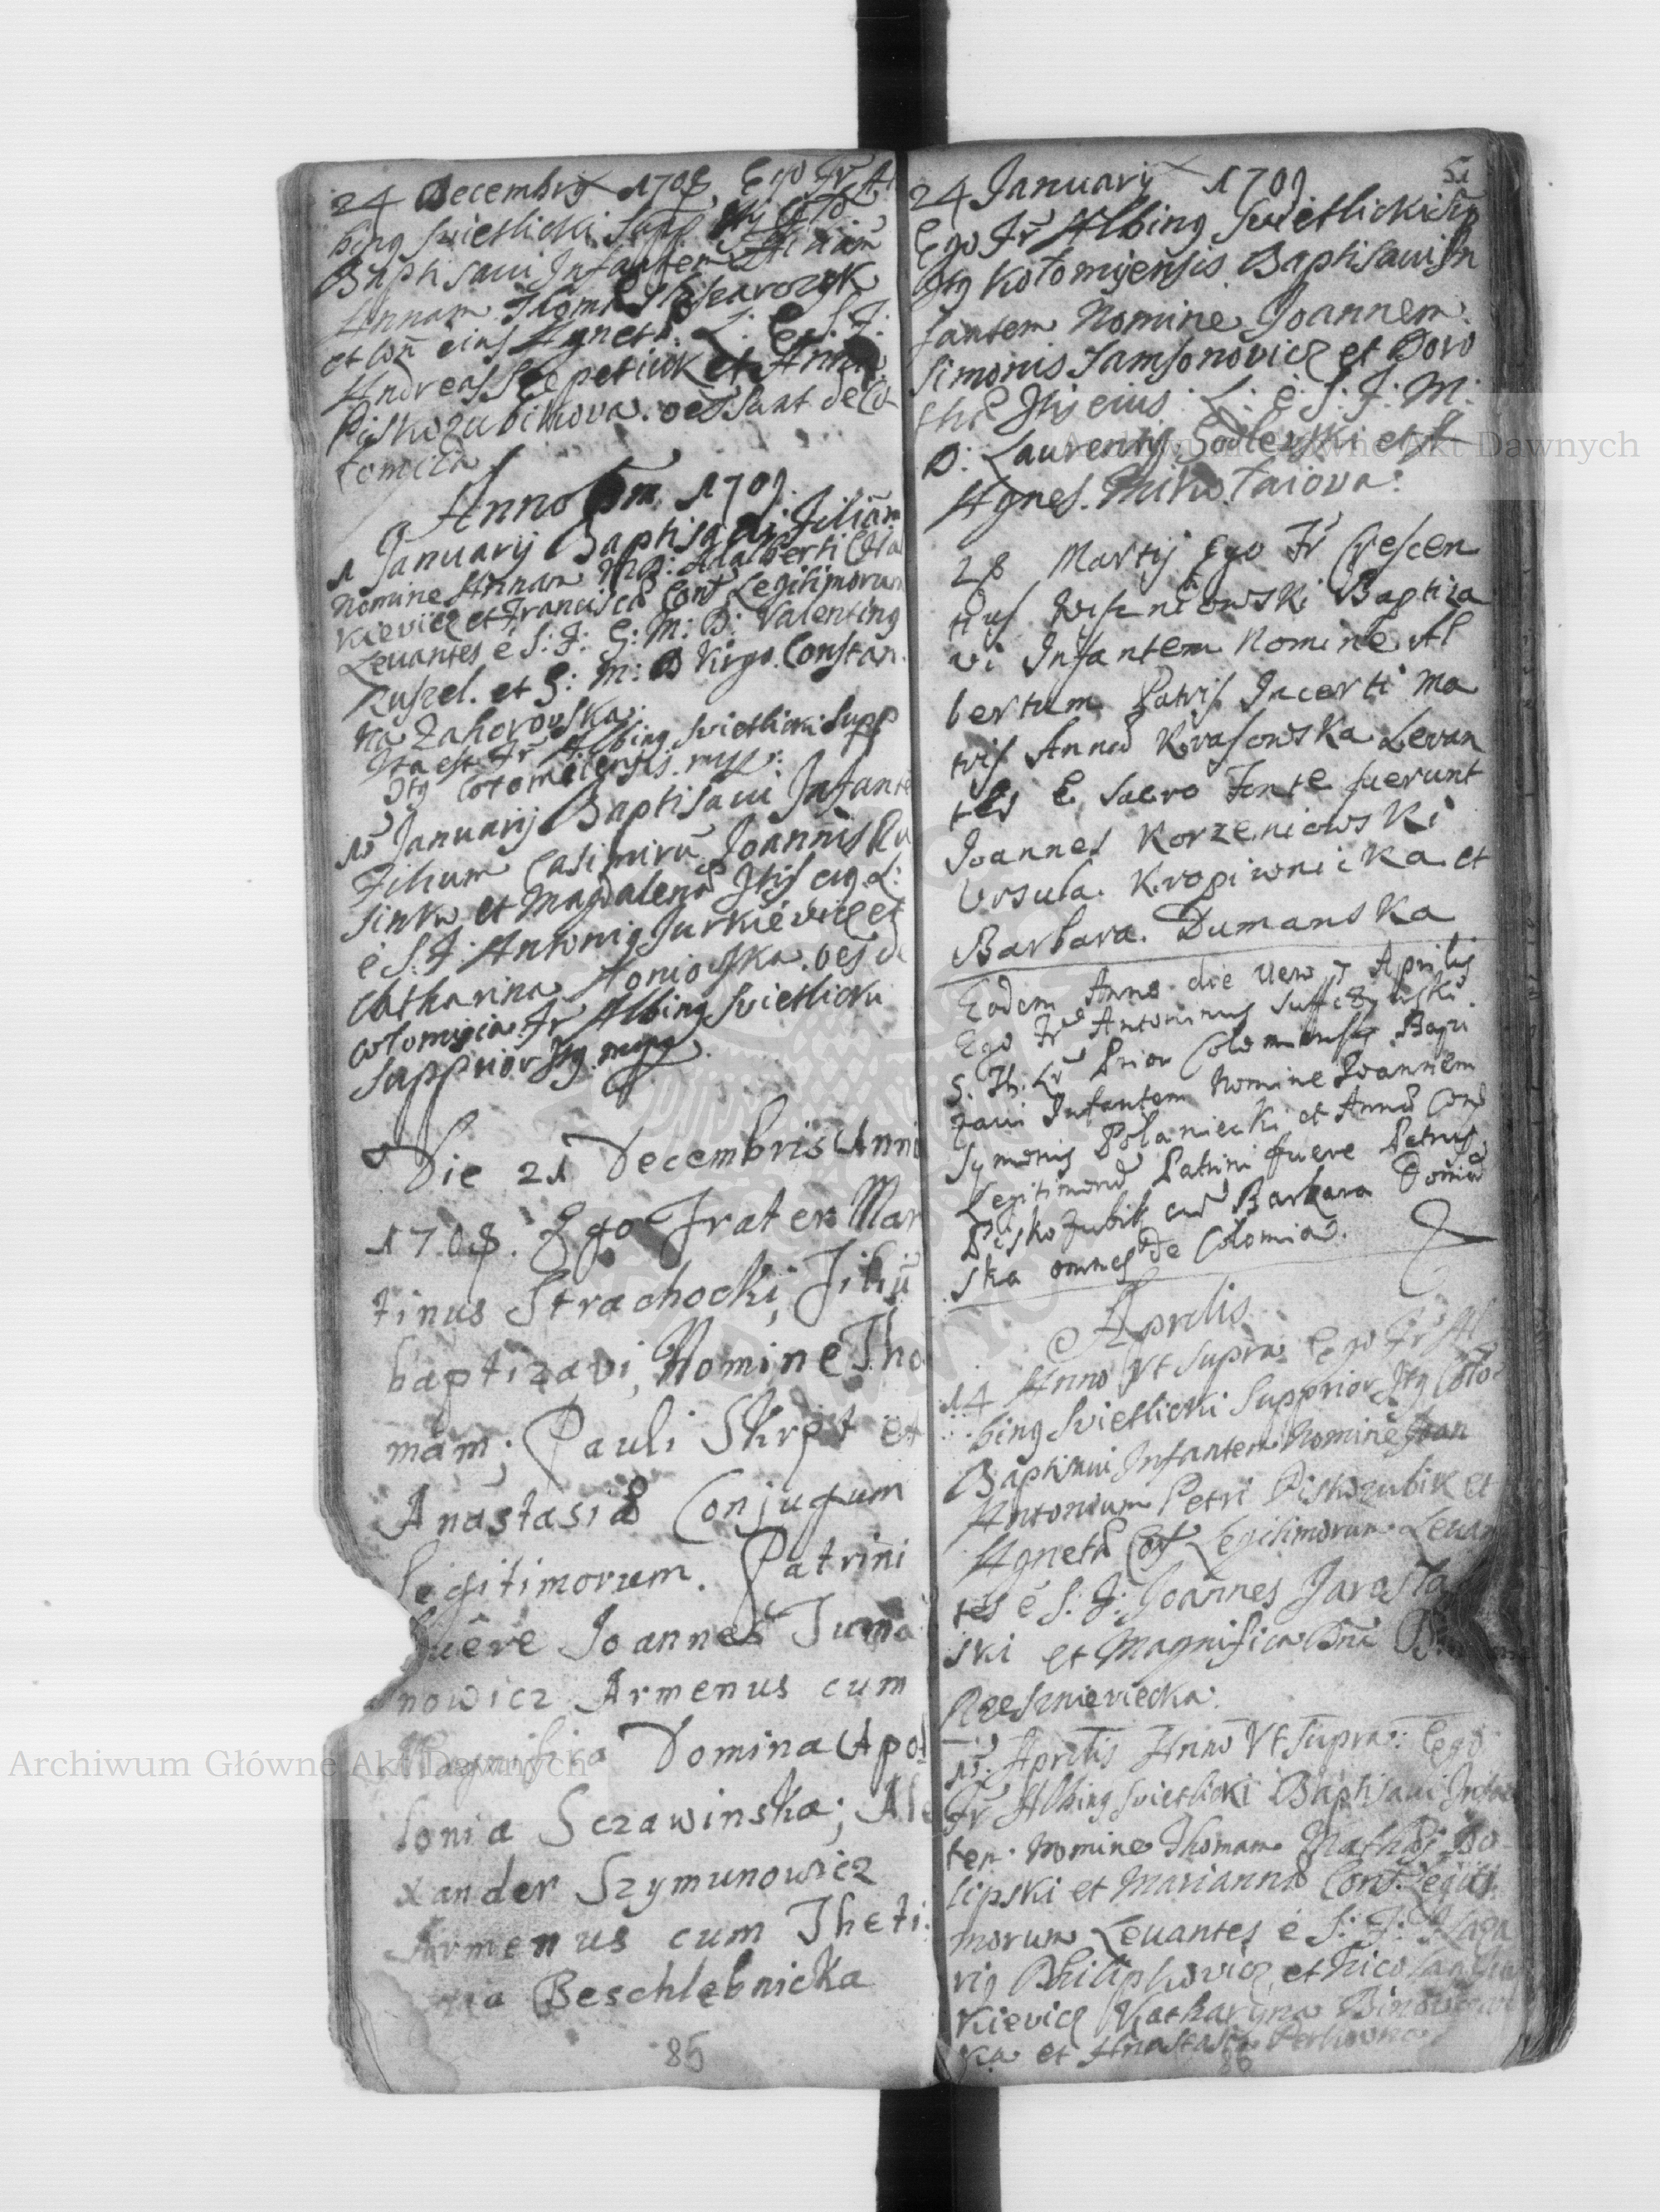 24 Decembris 1708 Ego Fr Al
bing Svietlicki Supp
Baptisavi Infantem Nom
Annam Thomæ
et Con eius Agnetæ L: E: S: F:
Andreas et Anna
Piskozubikova. oes sunt de Co
lomia
Anno Dm 1709.
1 January Baptisavi Filiam
nomine Annam MD: Adalberti
kievicz et Franciscæ Conj Legitimorum
Levantes é S: F: G: M: D: Valenting
Ruszel. et G: M: D Virgo Constan
tia Zahorovska:
Ita est Fr Albing Svietlicki Supp
Itg Colomiiensis mpp:
15 Januarij Baptisavi Infante
Filium Casimirũ Joannis Ru
sinka et Magdalenæ Itis eig L:
é S: F: Antonig Jurkiévicz et
Catharina oes de
Colomyia. Fr Albing Svietlicki
Suppriior Itg mpp.
Die 21 Decembris Anni
1708. Ego Frater Mar
tinus Strachocki, Filiũ
baptizavi, Nomine Tho
mam; Pauli Skrpt et
Anastasiæ Conjugum
legitimorum. Patrini
fuêre Joannes Tuma
nowicz Armenus cum
Magnifica Domina Apol
lonia Sczawinska; Ale
xander Szymunowicz
Armenus cum Theti:
Beschlebnicka
85
51
24 Januarij 1709
Ego Fr Albing Svietlicki Sup
Itg Kołomyensis Baptisavi In
fantem Nomine Joannem
Simonis Samsonovicz et Doro
theæ Itis eius: L: é: S: F: M:
D: Laurentig Sodlevski et
Agnes. Mikołaiova:
28 Martij Ego Fr Crescen
tius Wiszniowski Baptiza
vi Infantem Nomine Al
bertum Patris Incerti Ma
tris Annæ Krasowska Levan
tes E Sacro Fonte fuerunt
Joannes Korzeniowski
Ursula Kropiwnicka et
Barbara. Dumanska
Eodem Anno die vero 7 Aprilis
Ego Fr Antoninus Sufficzynski.
S. Th. Lr Prior Colomiensis Bapti
zavi Infantem Nomine Joannem
Symonis Polaniecki et Annæ Conj
Legitimorũ Patrini fuere Petrus
Piskozubik cũ Barbara
ska omnes de Colomia.
Aprilis
14 Anno Vt supra Ego Fr Al
bing Svietlicki Supprior Itg Colo
Baptisavi Infantem Nomine Joan
Antonium Petri Piskozubik et
Agnetæ Conj Legitimorum Levan
tes é S: F: Joannes
ski et Magnifica Dna
Rzesznieviecka.
15. Aprilis Anno Vt Supra: Ego
Fr Albing Svietlicki Baptisavi Infan
tem Nomine Thomam Mathæi
lipski et Mariannæ Conj: Legiti
morum Levantes é S: F:
rig Philiphovicz et Nicolaus
kievicz Katharyna
ka et Anastasia
86
Archiwum Główne Akt Dawnych
Archiwum Główne Akt Dawnych